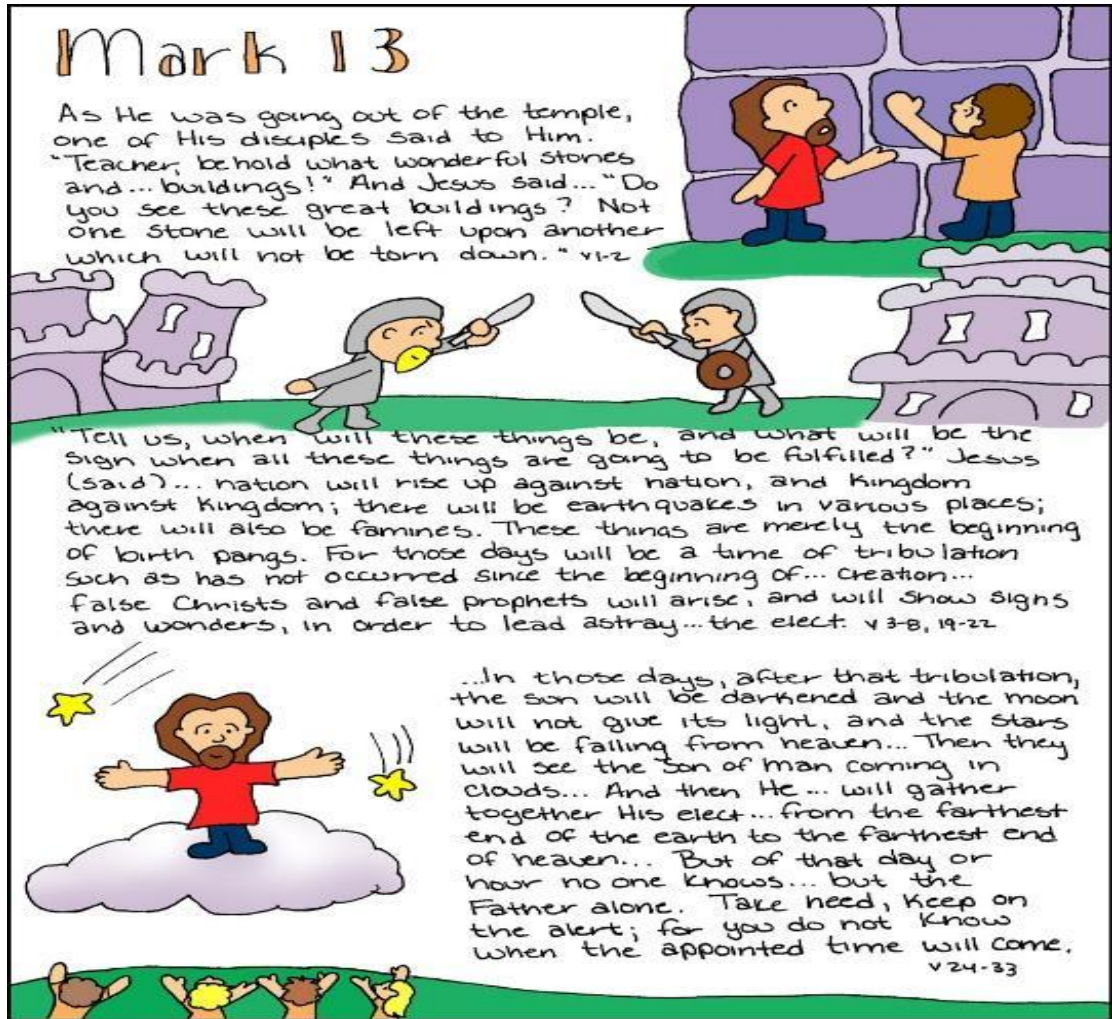 Mark 13
As He was going out of the temple,
one of His disciples said to Him.
"Teacher, behold what wonderful stones
and... buildings!" And Jesus said... "Do
you see these great buildings? Not
one stone will be left upon another
which will not be torn down." v1-2
"Tell us, when will these things be, and what will be the
sign when all these things are going to be fulfilled?" Jesus
(said)... nation will rise up against nation, and kingdom
against kingdom; there will be earthquakes in various places;
there will also be famines. These things are merely the beginning
of birth pangs. For those days will be a time of tribulation
such as has not occurred since the beginning of... creation...
false Christs and false prophets will arise, and will show signs
and wonders, in order to lead astray... the elect. v 3-8, 19-22
...In those days, after that tribulation,
the sun will be darkened and the moon
will not give its light, and the stars
will be falling from heaven... Then they
will see the Son of man coming in
clouds... And then He... will gather
together His elect... from the farthest
end of the earth to the farthest end
of heaven... But of that day or
hour no one knows... but the
Father alone. Take heed, keep on
the alert; for you do not know
when the appointed time will come.
v 24-33